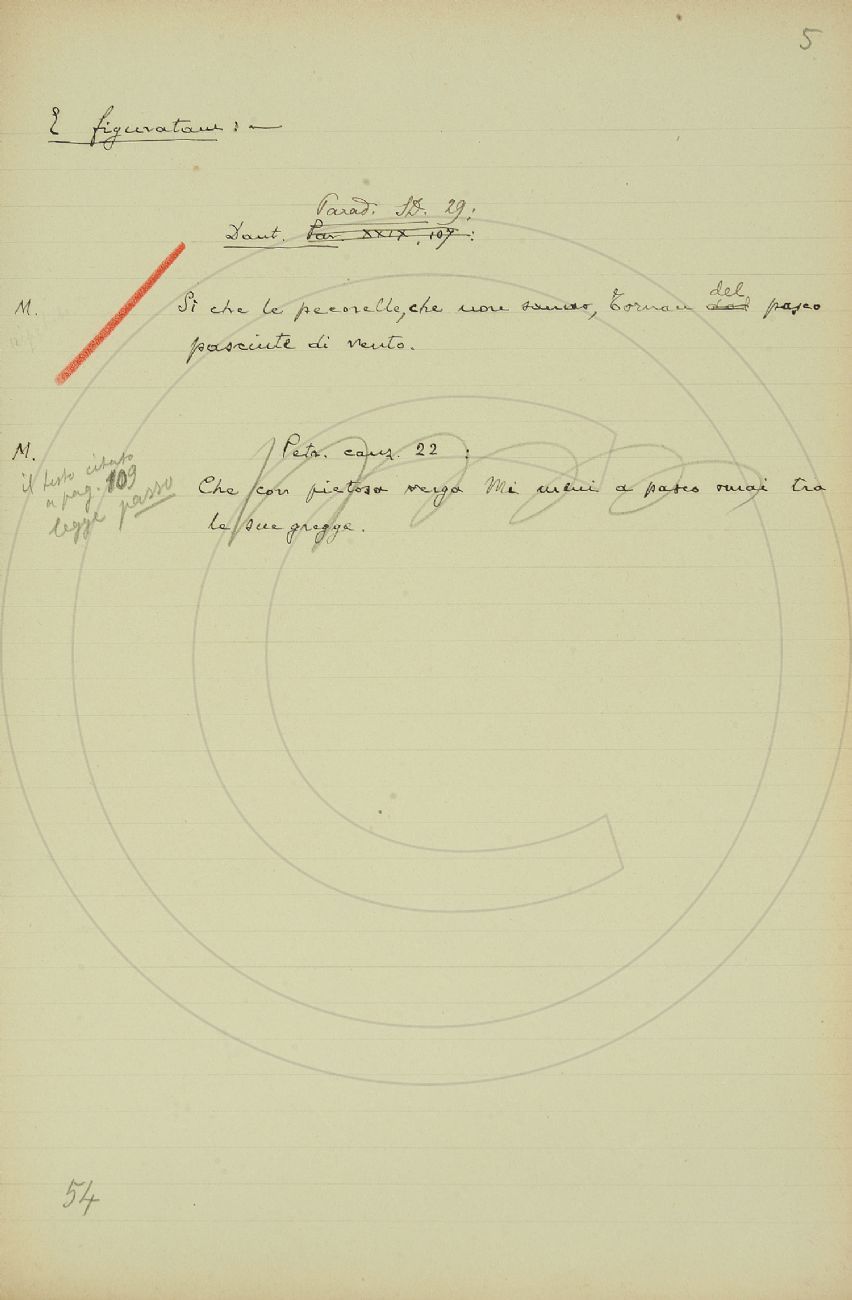 5
E figuratam: —
Parad. SD. 29:
Dant. Par. XXIX, 107:
M. Sì che le pecorelle, che non sanno, Tornan dal del pasco
pasciute di vento.
M. Petr. canz. 22:
il testo citato
a pag. 109
legge passo
Che con pietosa verga Mi meni a pasco omai tra
le sue gregge.
54